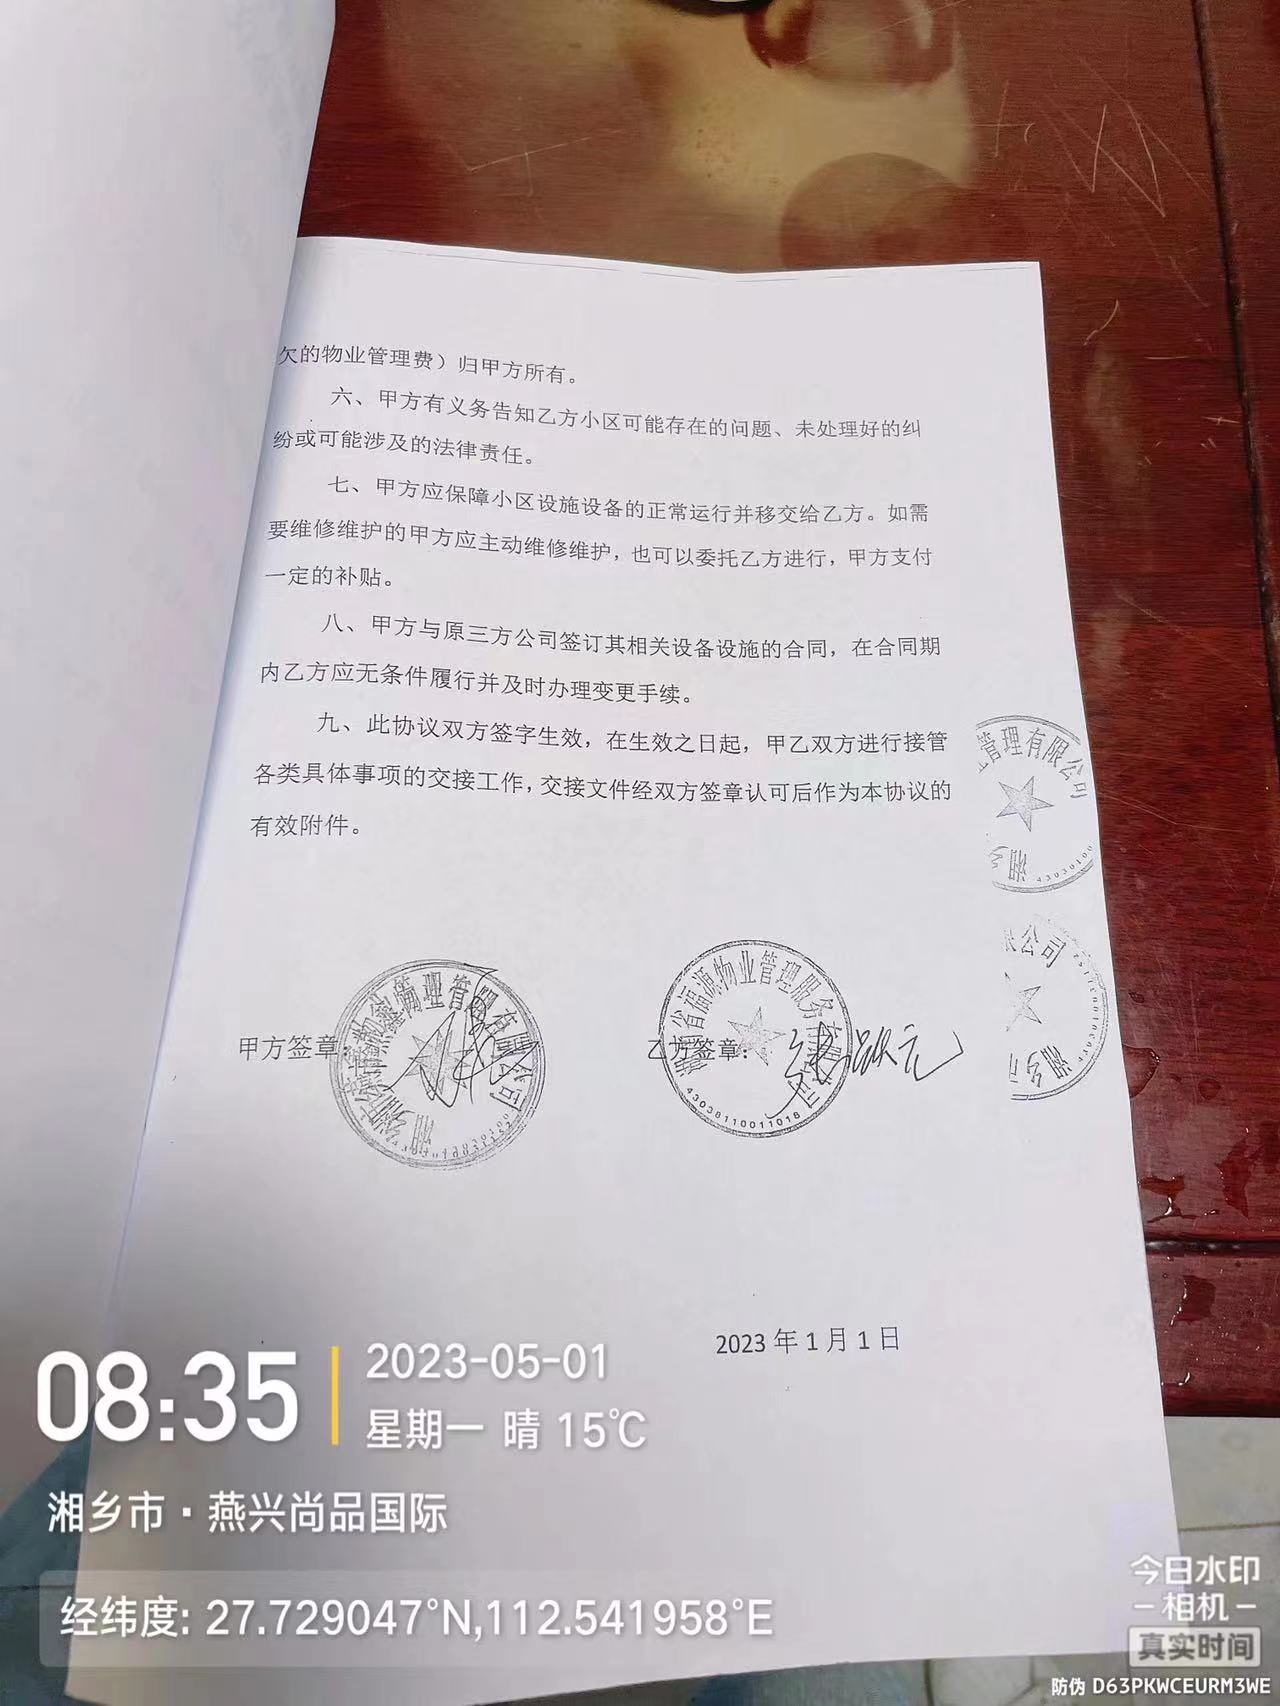 欠的物业管理费）归甲方所有。
六、甲方有义务告知乙方小区可能存在的问题、未处理好的纠
纷或可能涉及的法律责任。
七、甲方应保障小区设施设备的正常运行并移交给乙方。如需
要维修维护的甲方应主动维修维护，也可以委托乙方进行，甲方支付
一定的补贴。
八、甲方与原三方公司签订其相关设备设施的合同，在合同期
内乙方应无条件履行并及时办理变更手续。
九、此协议双方签字生效，在生效之日起，甲乙双方进行接管
各类具体事项的交接工作，交接文件经双方签章认可后作为本协议的
有效附件。
管理有限公司
湘
公司
湘乡市
甲方签章：
物业管理有限公司
乙方签章：
省福源物业管理服务有限公司
43038110011018
2023 年 1 月 1 日
08:35
2023-05-01
星期一 晴 15℃
湘乡市·燕兴尚品国际
经纬度: 27.729047°N,112.541958°E
今日水印
-相机-
真实时间
防伪 D63PKWCEURM3WE